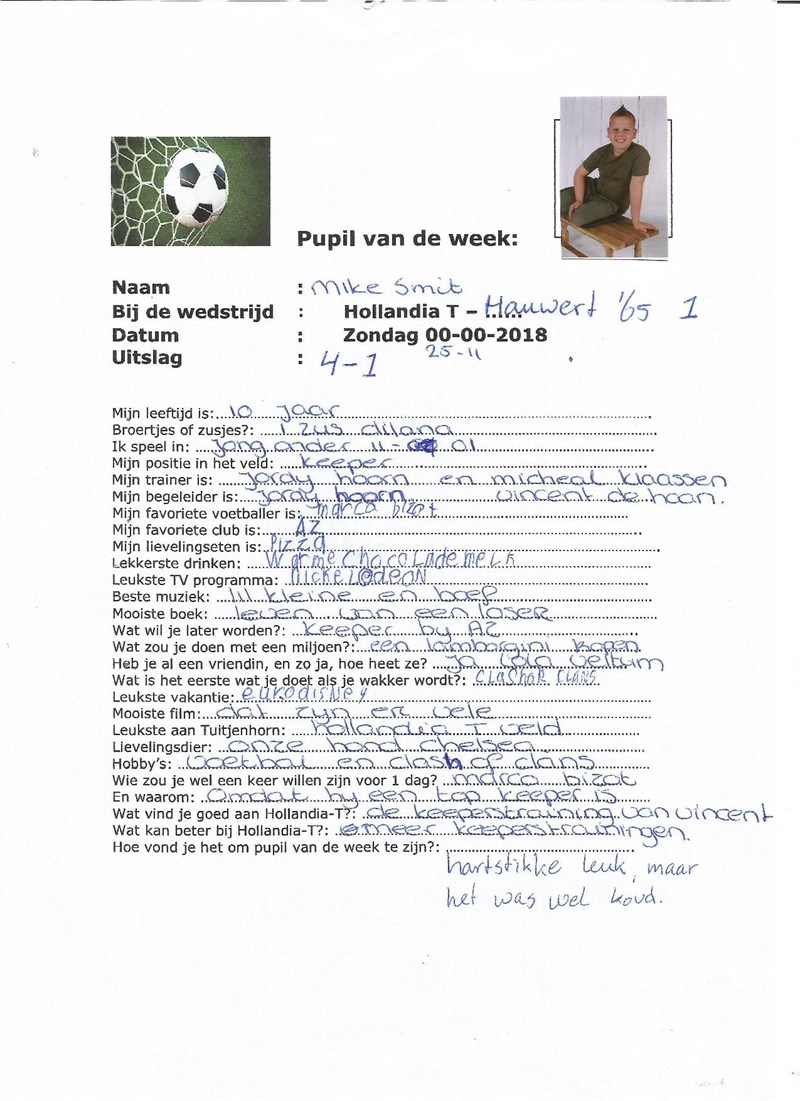 Pupil van de week:
Naam : Mike Smit
Bij de wedstrijd : Hollandia T – Hauwert '65 1
Datum : Zondag 00-00-2018
25-11
Uitslag : 4-1
Mijn leeftijd is: 10 jaar
Broertjes of zusjes?: 1 zus dilana
Ik speel in: jong onder 11- 01
Mijn positie in het veld: keeper
Mijn trainer is: Jordy hoorn en micheal klaassen
Mijn begeleider is: Jordy hoorn vincent de haan.
Mijn favoriete voetballer is: marco bizot
Mijn favoriete club is: AZ
Mijn lievelingseten is: Pizza
Lekkerste drinken: Warme chocolademelk
Leukste TV programma: nickelodeon
Beste muziek: lil kleine en boef
Mooiste boek: leven van een loser
Wat wil je later worden?: keeper by AZ
Wat zou je doen met een miljoen?: een lamborgini kopen
Heb je al een vriendin, en zo ja, hoe heet ze? ja Lola veltum
Wat is het eerste wat je doet als je wakker wordt?: clashof clans
Leukste vakantie: eurodisney
Mooiste film: dat zyn er vele
Leukste aan Tuitjenhorn: hollandia T veld
Lievelingsdier: onze hond chelsea
Hobby's: voetbal en clash of clans
Wie zou je wel een keer willen zijn voor 1 dag? marco bizot
En waarom: Omdat hy een top keeper is
Wat vind je goed aan Hollandia-T?: de keeperstraining van vincent
Wat kan beter bij Hollandia-T?: meer keeperstrainingen.
Hoe vond je het om pupil van de week te zijn?:
hartstikke leuk, maar
het was wel koud.